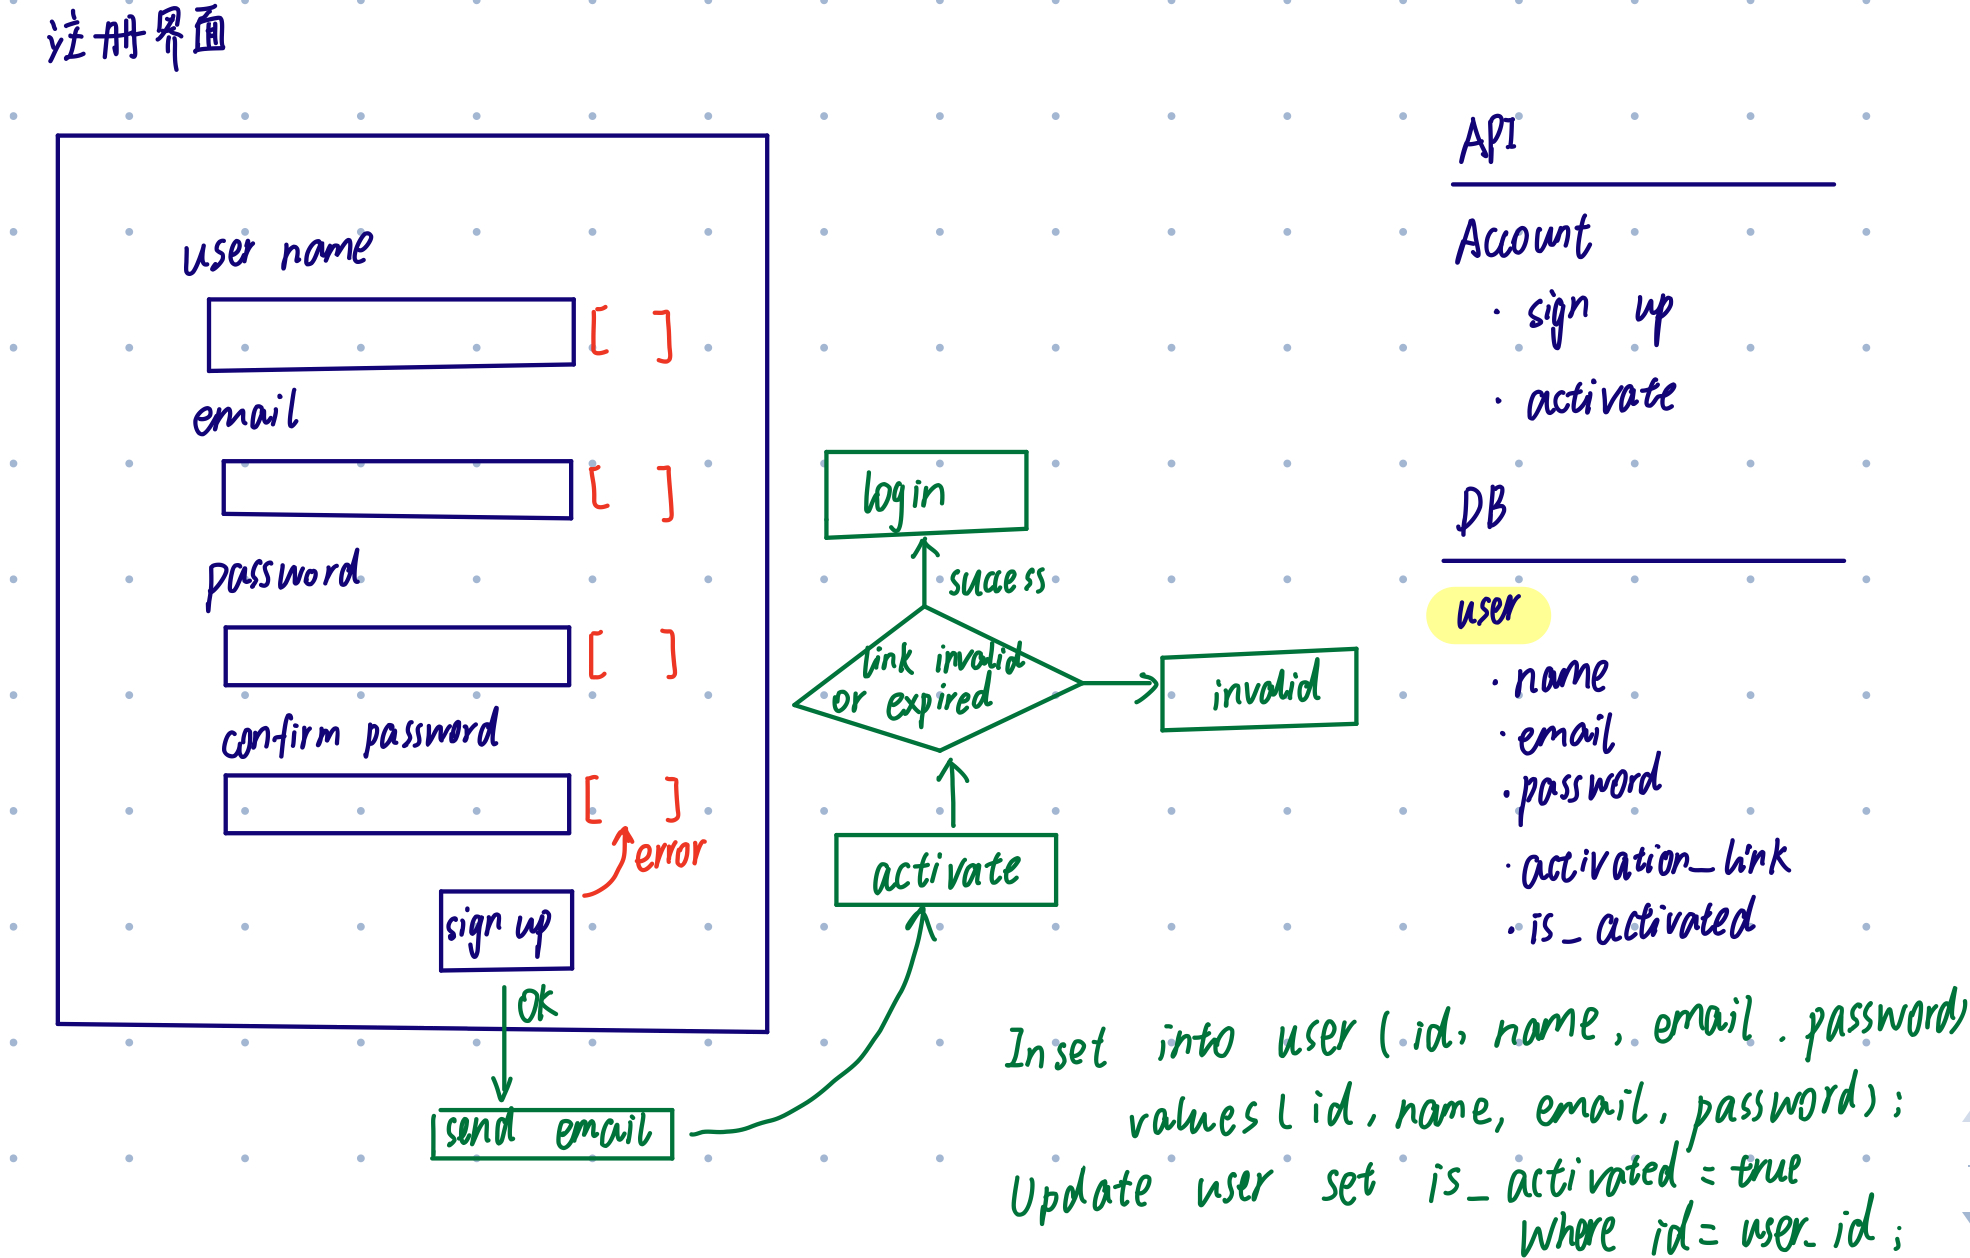 注册界面
user name
[ ]
email
[ ]
password
[ ]
confirm password
[ ]
error
sign up
OK
send email
login
sucess
link invalid
or expired
invalid
activate
API
Account
· sign up
· activate
DB
user
· name
· email
· password
· activation_link
· is_activated
Inset into user ( id, name, email. password)
values ( id, name, email, password);
Update user set is_activated = true
where id = user_id;